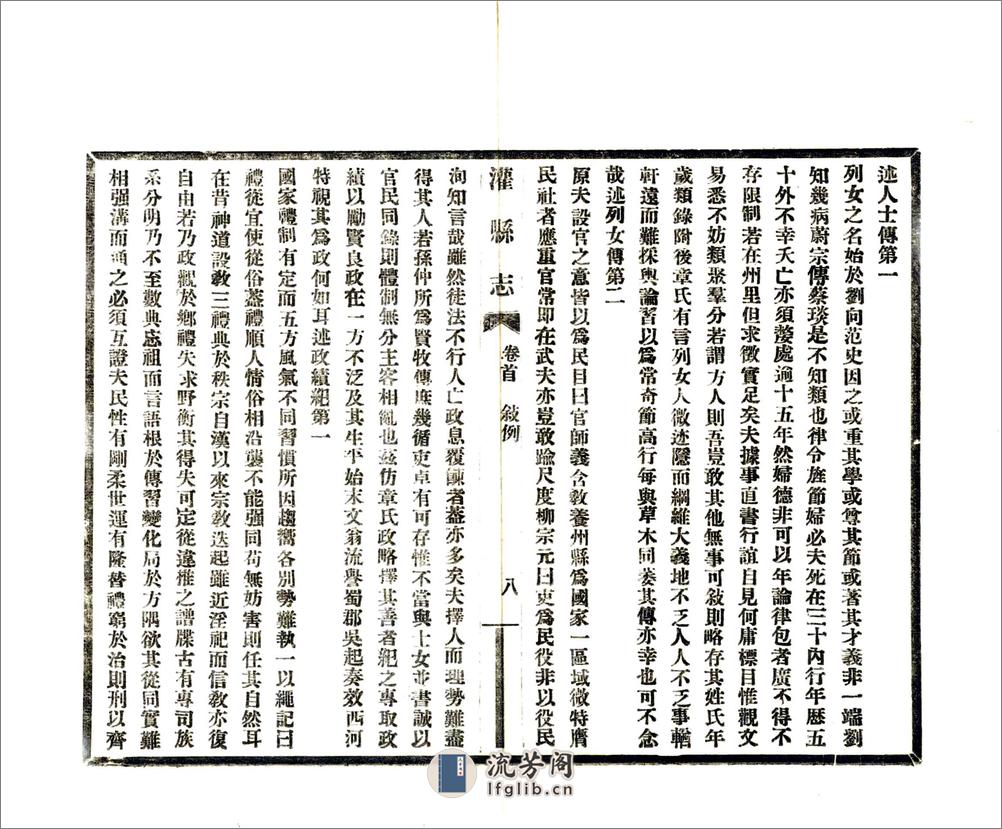 述人士傳第一
列女之名始於劉向范史因之或重其學或尊其節或著其才義非一端劉
知幾病蔚宗傳蔡琰是不知類也律令旌節婦必夫死在三十內行年歷五
十外不幸夭亡亦須嫠處逾十五年然婦德非可以年論律包者廣不得不
存限制若在州里但求徵實足矣夫據事直書行誼自見何庸標目惟觀文
易悉不妨類聚羣分若謂方人則吾豈敢其他無事可敍則略存其姓氏年
歲類錄附後章氏有言列女人微迹隱而綱維大義地不乏人人不乏事輶
軒遠而難採輿論習以爲常奇節高行每與草木同萎其傳亦幸也可不念
哉述列女傳第二
原夫設官之意皆以爲民目曰官師義含敎養州縣爲國家一區域微特膺
民社者應重官常即在武夫亦豈敢踰尺度柳宗元曰吏爲民役非以役民
灌縣志
卷首 敍例
八
洵知言哉雖然徒法不行人亡政息覆餗者蓋亦多矣夫擇人而理勢難盡
得其人若孫仲所爲賢牧傳庶幾循吏卓有可存惟不當與士女並書誠以
官民同錄則體制無分主客相亂也茲仿章氏政略擇其善者紀之專取政
績以勵賢良政在一方不泛及其生平始末文翁流譽蜀郡吳起奏效西河
特視其爲政何如耳述政績紀第一
國家禮制有定而五方風氣不同習慣所因趨嚮各別勢難執一以繩記曰
禮從宜使從俗蓋禮順人情俗相沿襲不能强同苟無妨害則任其自然耳
在昔神道設敎三禮典於秩宗自漢以來宗敎迭起雖近淫祀而信敎亦復
自由若乃政觀於鄉禮失求野衡其得失可定從違稚之譜牒古有專司族
系分明乃不至數典忘祖而言語根於傳習變化局於方隅欲其從同實難
相强溝而通之必須互證夫民性有剛柔世運有隆替禮窮於治則刑以齊
流芳阁
lfglib.cn